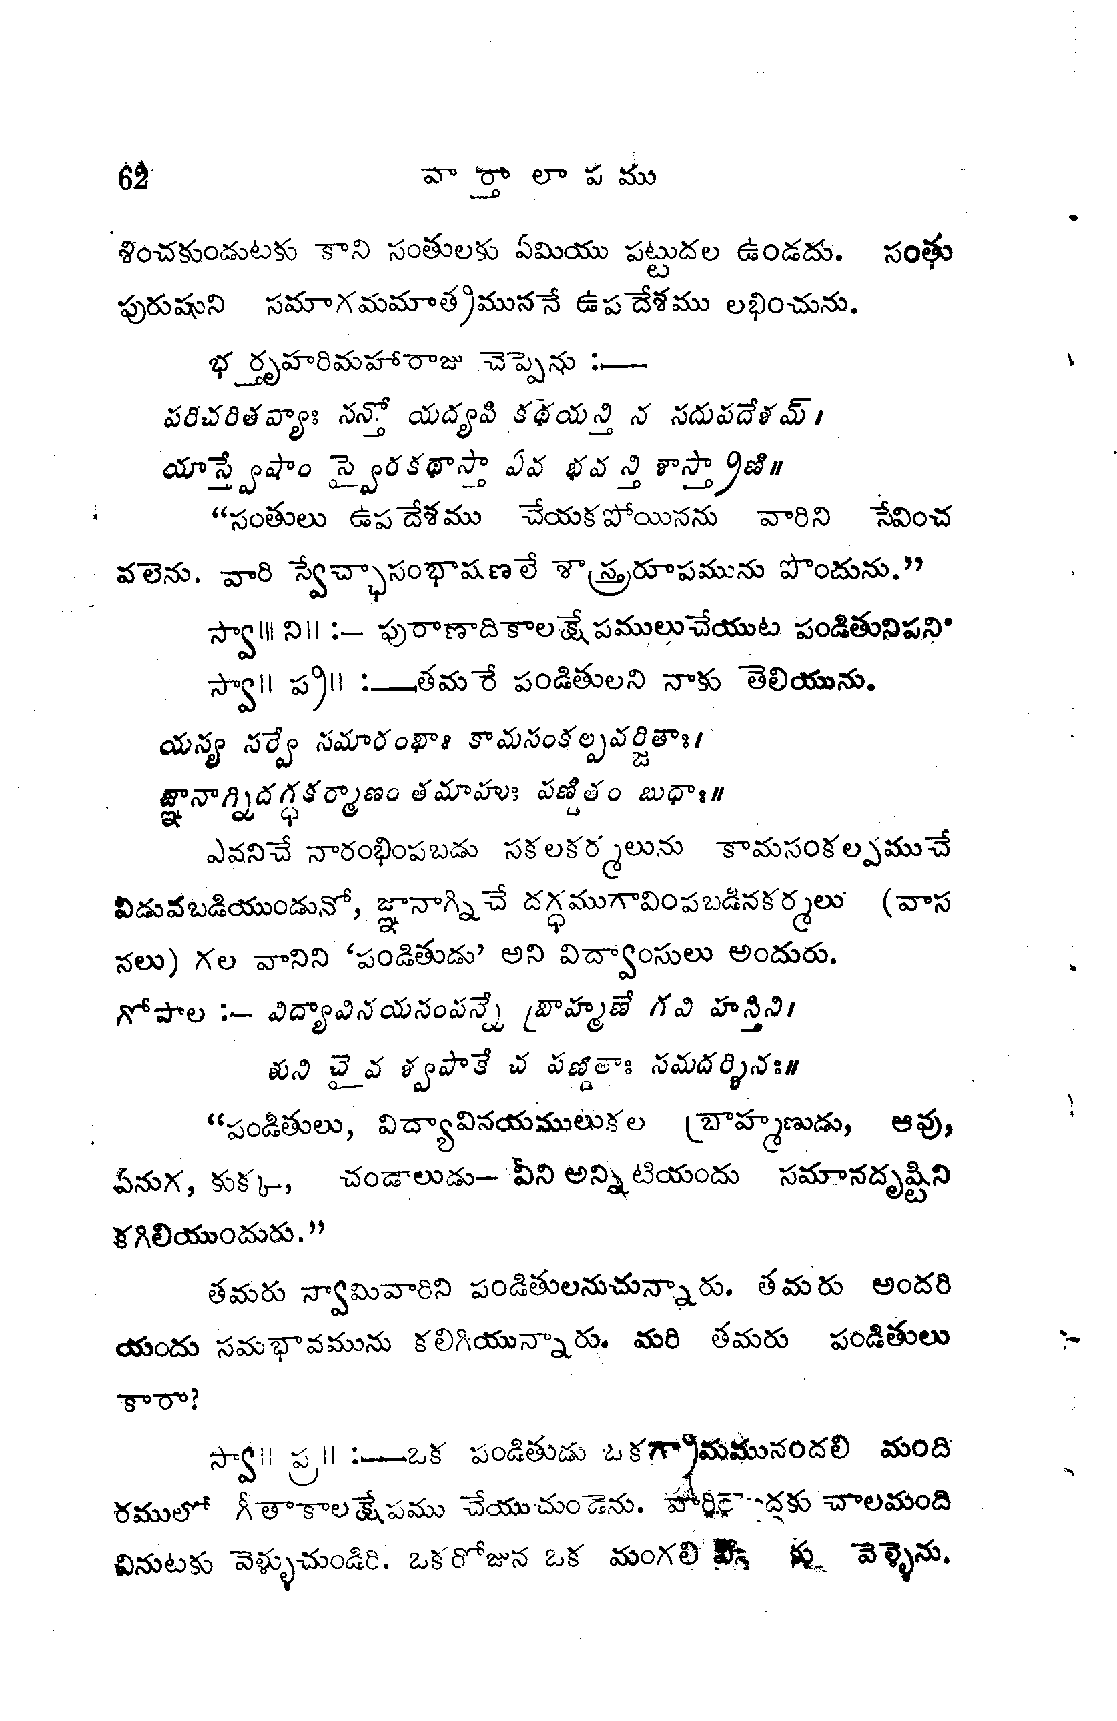 62 వార్తాలాపము
శించకుండుటకు కాని సంతులకు ఏమియు పట్టుదల ఉండదు. సంతు
పురుషుని సమాగమమాత్రముననే ఉపదేశము లభించును.
భర్తృహరిమహారాజు చెప్పెను :—
పరిచరితవ్యాః సన్తో యద్యపి కథయన్తి న సదుపదేశమ్।
యాస్త్వేషాం స్వైరకథాస్తా ఏవ భవన్తి శాస్త్రాణి॥
“సంతులు ఉపదేశము చేయకపోయినను వారిని సేవించ
వలెను. వారి స్వేచ్ఛాసంభాషణలే శాస్త్రరూపమును పొందును.”
స్వా॥ ని॥ :— పురాణాదికాలక్షేపములుచేయుట పండితునిపని
స్వా॥ ప్ర॥ :—తమరే పండితులని నాకు తెలియును.
యస్య సర్వే సమారంభాః కామసంకల్పవర్జితాః।
జ్ఞానాగ్నిదగ్ధకర్మాణం తమాహుః పణ్డితం బుధాః॥
ఎవనిచే నారంభింపబడు సకలకర్మలును కామసంకల్పముచే
విడువబడియుండునో, జ్ఞానాగ్నిచే దగ్ధముగావింపబడినకర్మలు (వాస
నలు) గల వానిని ‘పండితుడు’ అని విద్వాంసులు అందురు.
గోపాల :— విద్యావినయసంపన్నే బ్రాహ్మణే గవి హస్తిని।
శుని చైవ శ్వపాకే చ పణ్డితాః సమదర్శినః॥
“పండితులు, విద్యావినయములుకల బ్రాహ్మణుడు, ఆవు,
ఏనుగ, కుక్క, చండాలుడు— వీని అన్నిటియందు సమానదృష్టిని
కగిలియుందురు.”
తమరు స్వామివారిని పండితులనుచున్నారు. తమరు అందరి
యందు సమభావమును కలిగియున్నారు. మరి తమరు పండితులు
కారా?
స్వా॥ ప్ర॥ :—ఒక పండితుడు ఒకగ్రామమునందలి మంది
రములో గీతాకాలక్షేపము చేయుచుండెను. చాలమంది
వినుటకు వెళ్ళుచుండిరి. ఒకరోజున ఒక మంగలి వెళ్ళెను.